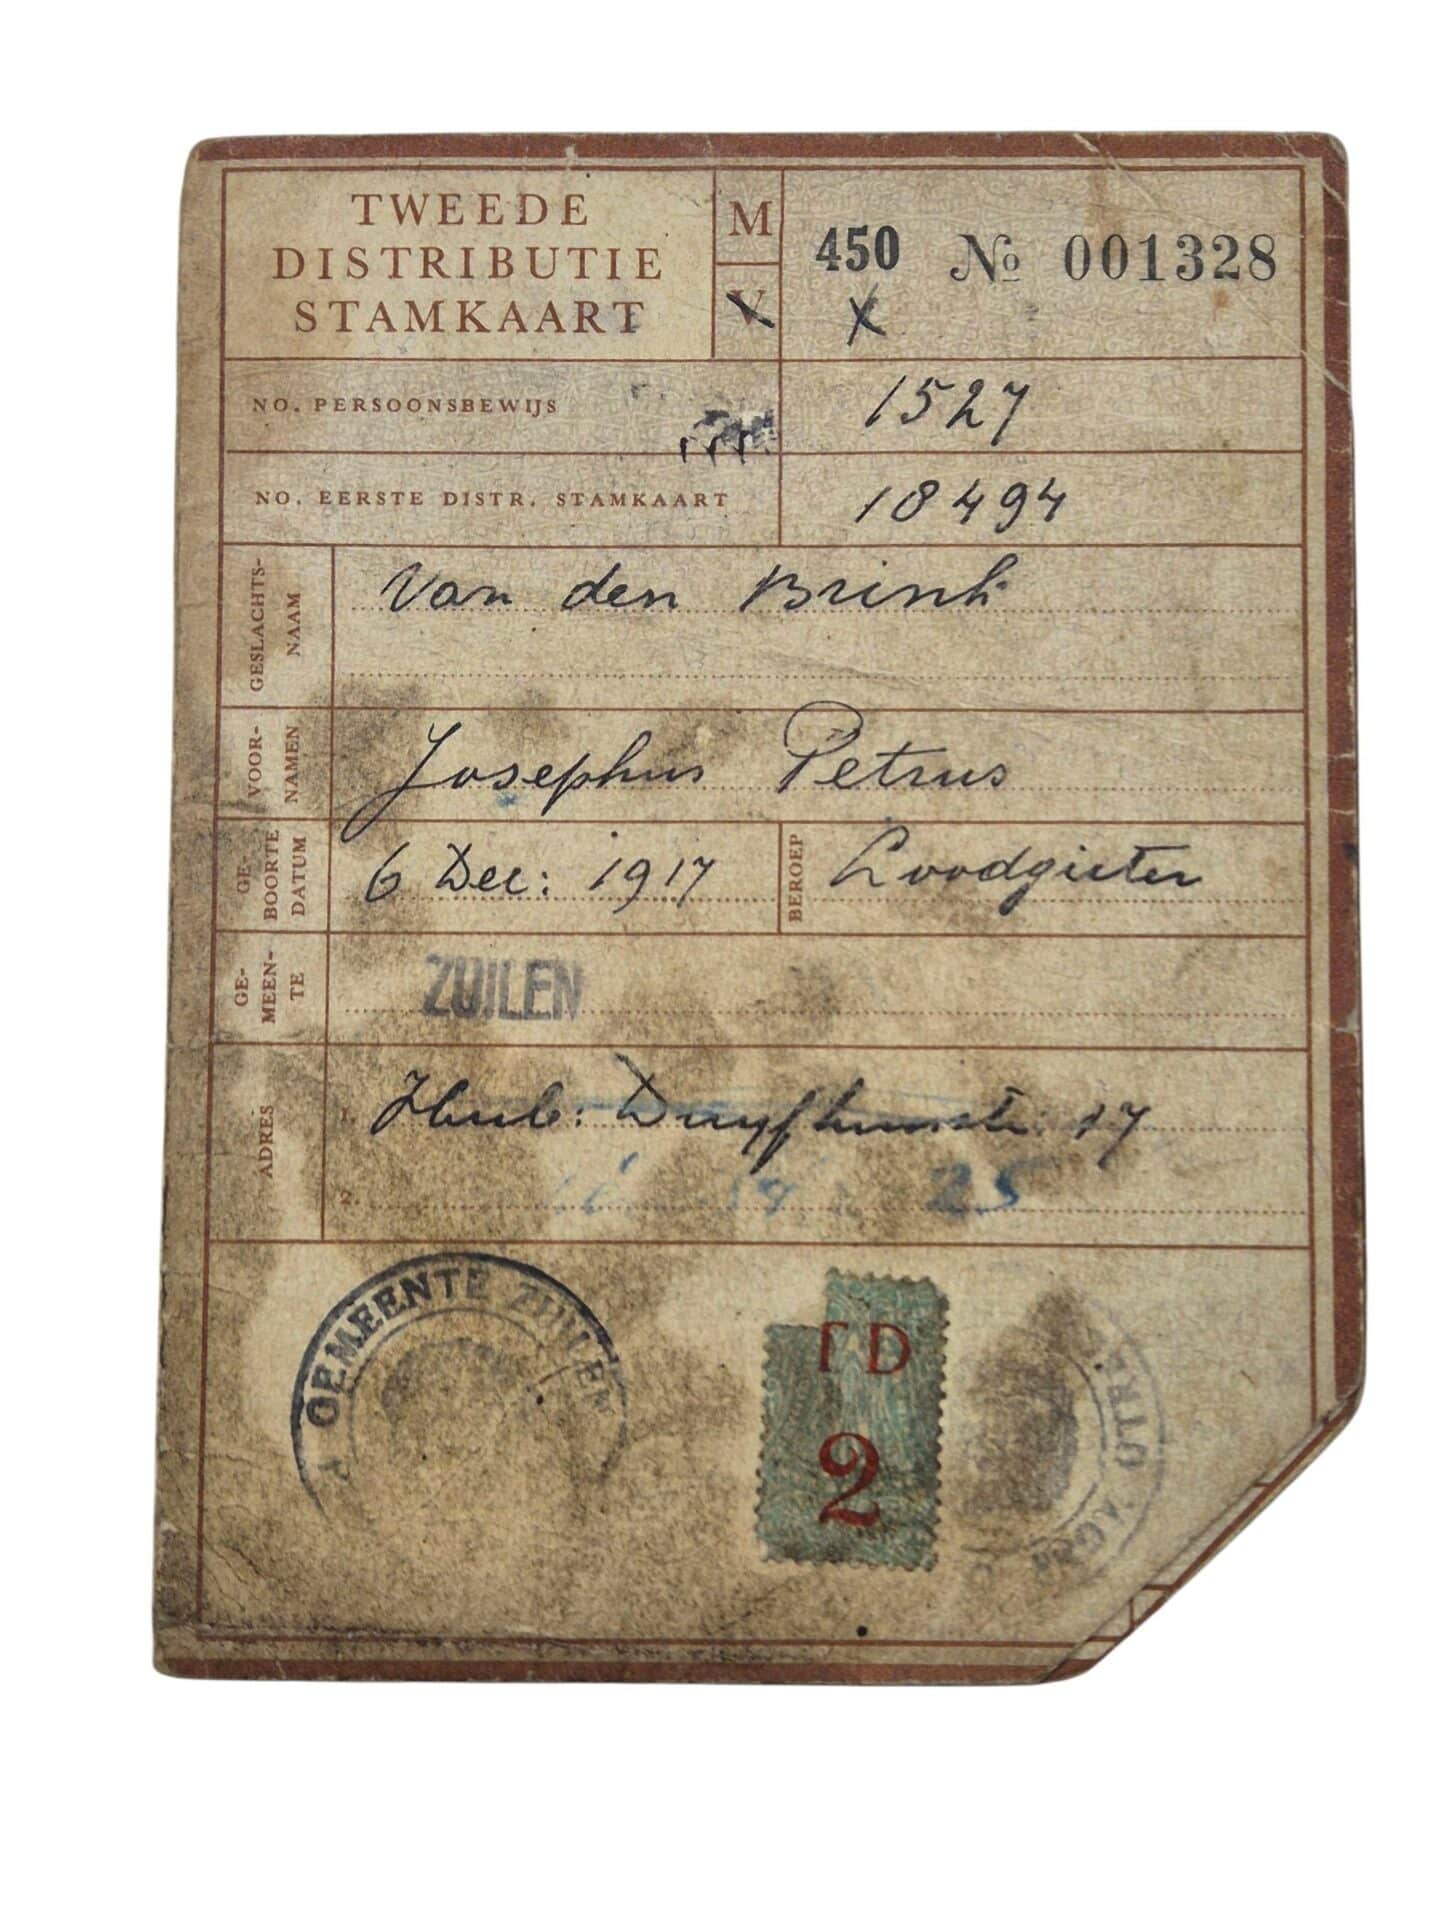 TWEEDE
DISTRIBUTIE
STAMKAART
M
V
450 № 001328
X
NO. PERSOONSBEWIJS
1527
NO. EERSTE DISTR. STAMKAART
18494
GESLACHTS-
NAAM
Van den Brink
VOOR-
NAMEN
Josephus Petrus
GE-
BOORTE
DATUM
6 Dec: 1917
BEROEP
Loodgieter
GE-
MEEN-
TE
ZUILEN
ADRES
1. Hub: Duyfhuisstr: 17
2. 25
GEMEENTE ZUILEN
TD
2
UTRE